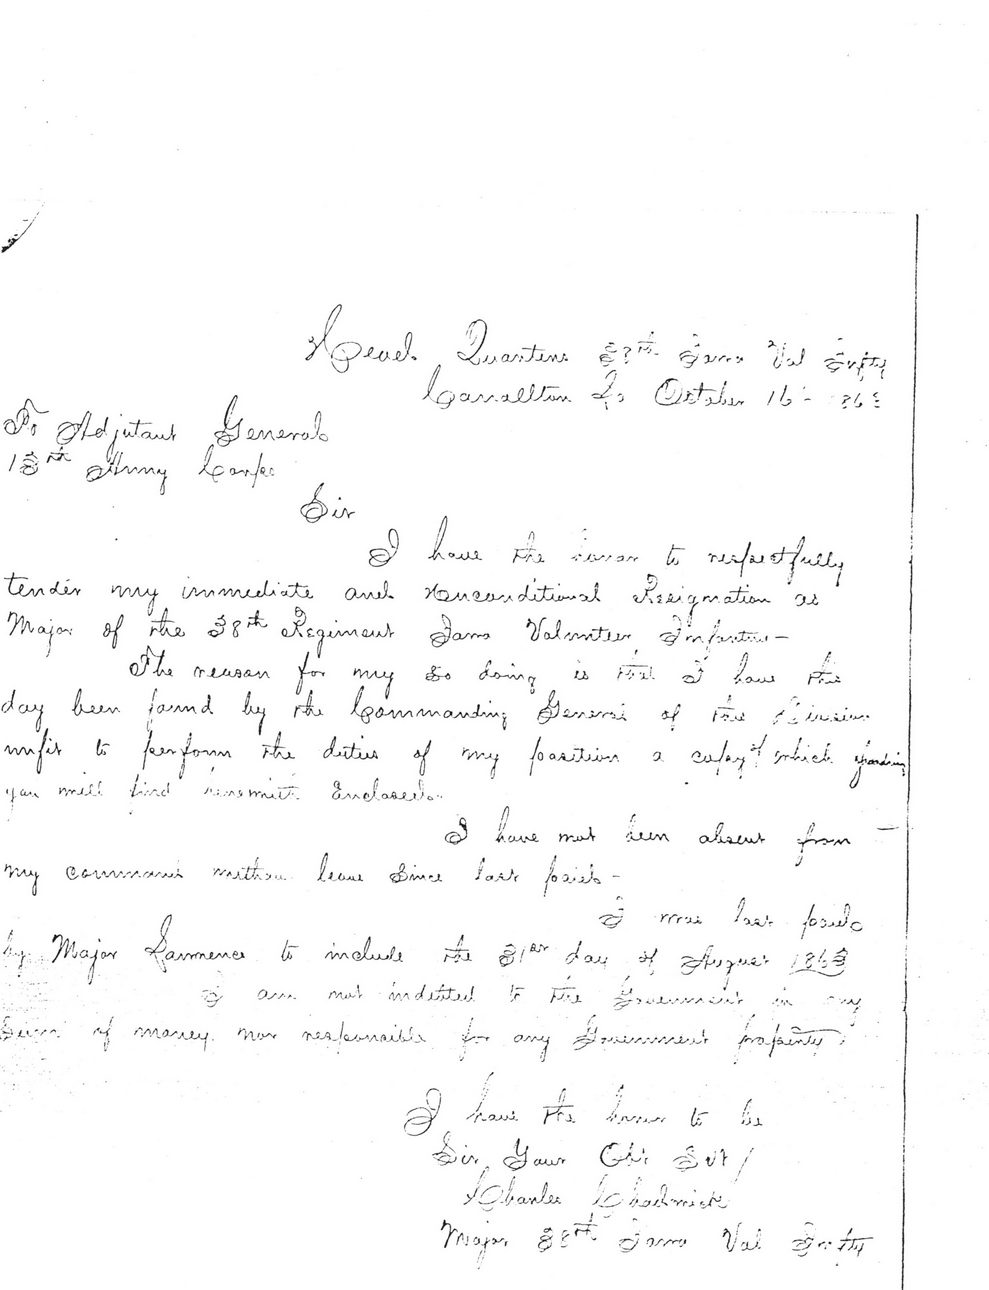 Head Quarters 38th Iowa Vol Infty
Carrollton La October 16th 1863
To Adjutant General
13th Army Corps
Sir
I have the honor to respectfully
tender my immediate and Unconditional Resignation as
Major of the 38th Regiment Iowa Volunteer Infantry—
The reason for my so doing is that I have this
day been found by the Commanding General of this Division
unfit to perform the duties of my position a copy of which
you will find herewith Enclosed.
I have not been absent from
my command without leave since last paid—
I was last paid
by Major Lawrence to include the 31st day of August 1863
I am not indebted to the Government in any
Sum of money nor responsible for any Government property.
I have the honor to be
Sir Your Obt Svt/
Charles Chadwick
Major 38th Iowa Vol Infty